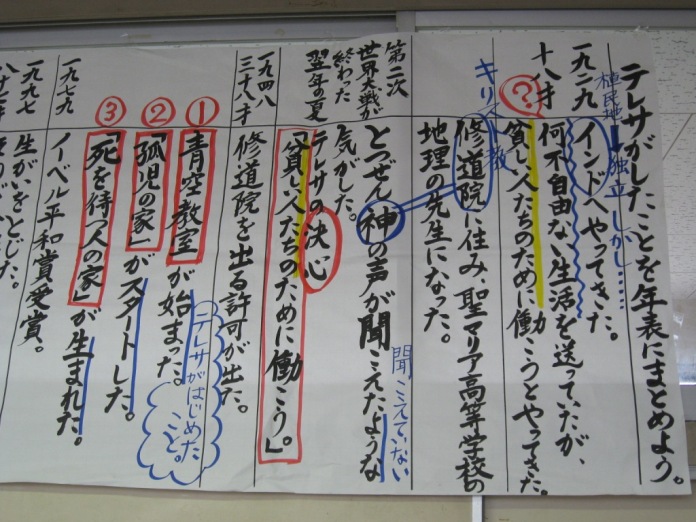 テレサがしたことを年表にまとめよう。
植民地→独立 しかし……
一九二九
十八才
インドへやってきた。
何不自由ない生活を送っていたが、
?
貧しい人たちのために働こうとやってきた。
キリスト教
修道院に住み、聖マリア高等学校の
地理の先生になった。
第二次
世界大戦が
終わった
翌年の夏
とつぜん神の声が聞こえたような
聞こえていない
気がした。
テレサの決心
「貧しい人たちのために働こう。」
一九四八
三十八才
修道院を出る許可が出た。
①
青空教室が始まった。
テレサがはじめた
こと。
②
「孤児の家」がスタートした。
③
「死を待つ人の家」が生まれた。
一九七九
ノーベル平和賞受賞。
一九九七
生がいをとじた。